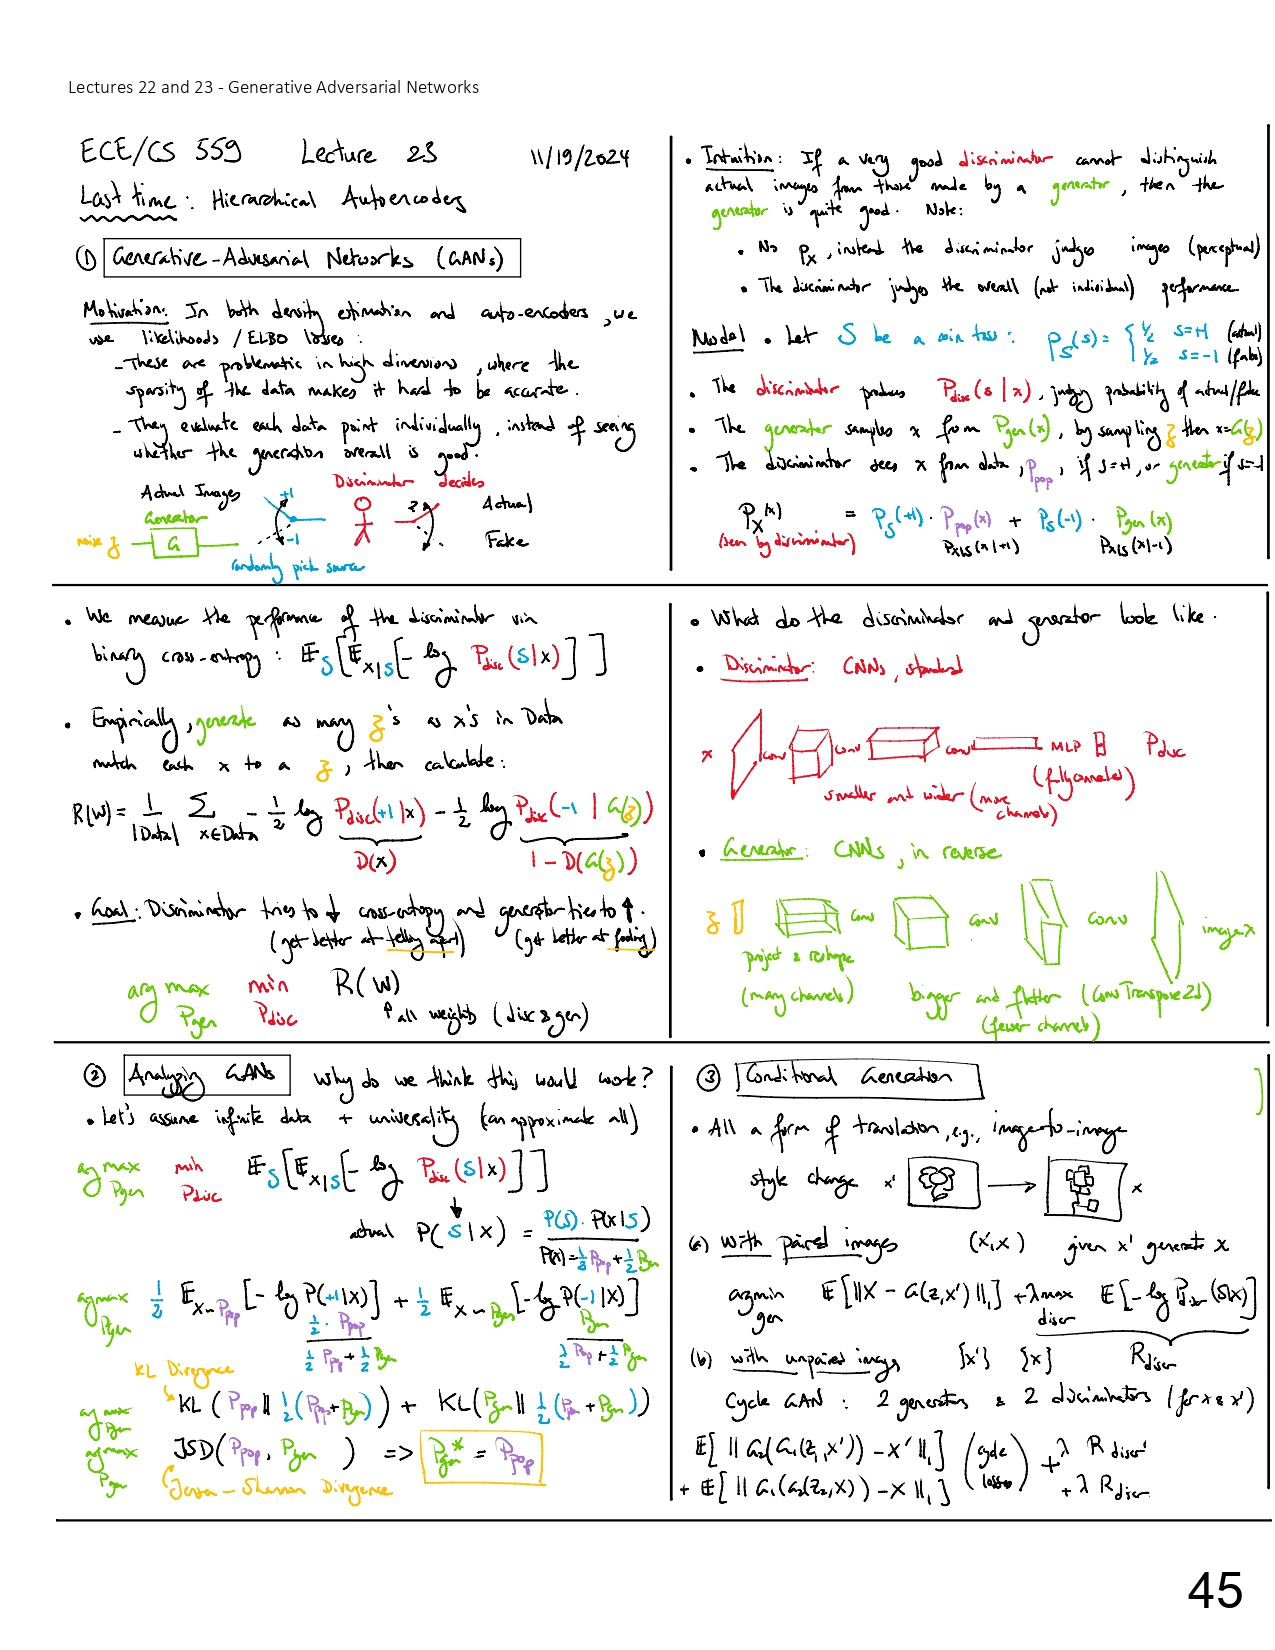 Lectures 22 and 23 - Generative Adversarial Networks
ECE/CS 559 Lecture 23 11/19/2024
Last time: Hierarchical Autoencoders
① Generative-Advesarial Networks (GANs)
Motivation: In both density estimation and auto-encoders, we
use likelihoods / ELBO losses:
- These are problematic in high dimensions, where the
sparsity of the data makes it hard to be accurate.
- They evaluate each data point individually, instead of seeing
whether the generation overall is good.
Actual Images +1 Discriminator decides ? Actual
Generator
noise z G -1 Fake
randomly pick source
• Intuition: If a very good discriminator cannot distinguish
actual images from those made by a generator, then the
generator is quite good. Note:
• No p_X, instead the discriminator judges images (perceptual)
• The discriminator judges the overall (not individual) performance
Model • Let S be a coin toss: p_S(s) = { 1/2 s=+1 (actual)
1/2 s=-1 (fake)
• The discriminator produces P_disc(s|x), judging probability of actual/fake
• The generator samples x from P_gen(x), by sampling z then x=G(z)
• The discriminator sees x from data, P_pop, if s=+1, or generator if s=-1
P_X(x) = P_S(+1) · P_pop(x) + P_S(-1) · P_gen(x)
(seen by discriminator) P_X|S(x|+1) P_X|S(x|-1)
• We measure the performance of the discriminator via
binary cross-entropy: 𝔼_S[𝔼_X|S[-log P_disc(S|X)]]
• Empirically, generate as many z's as x's in Data
match each x to a z, then calculate:
R(W) = 1/|Data| Σ_x∈Data -1/2 log P_disc(+1|x) - 1/2 log P_disc(-1 | G(z))
D(x) 1 - D(G(z))
• Goal: Discriminator tries to ↓ cross-entropy and generator tries to ↑.
(get better at telling apart) (get better at fooling)
arg max P_gen min P_disc R(W)
↑ all weights (disc & gen)
• What do the discriminator and generator look like.
• Discriminator: CNNs, standard
x conv conv conv MLP P_disc
(fully connected)
smaller and wider (more channels)
• Generator: CNNs, in reverse
z conv conv conv image x
project & reshape
(many channels) bigger and flatter (ConvTranspose2d)
(fewer channels)
② Analyzing GANs Why do we think this would work?
• Let's assume infinite data + universality (can approximate all)
argmax P_gen min P_disc 𝔼_S[𝔼_X|S[-log P_disc(S|X)]]
actual P(S|X) = P(S)·P(X|S) / P(X)=1/2 P_pop+1/2 P_gen
argmax P_gen 1/2 𝔼_X~P_pop[-log P(+1|X)] + 1/2 𝔼_X~P_gen[-log P(-1|X)]
1/2 · P_pop / 1/2 P_pop + 1/2 P_gen P_gen / 1/2 P_pop + 1/2 P_gen
KL Divergence
argmax P_gen KL(P_pop || 1/2(P_pop+P_gen)) + KL(P_gen || 1/2(P_pop+P_gen))
argmax P_gen JSD(P_pop, P_gen) => P_gen* = P_pop
Jensen-Shannon Divergence
③ Conditional Generation
• All a form of translation, e.g., image-to-image
style change x' → x
(a) With paired images (x',x) given x' generate x
argmin gen 𝔼[||X - G(z,x')||_1] + λ max discr 𝔼[-log P_discr(S|X)]
R_discr
(b) with unpaired images {x'} {x}
Cycle GAN: 2 generators & 2 discriminators (for x & x')
𝔼[||G_2(G_1(z_1,x')) - x'||_1] (cycle losses) + λ R_discr'
+ 𝔼[||G_1(G_2(z_2,x)) - x||_1] + λ R_discr
45